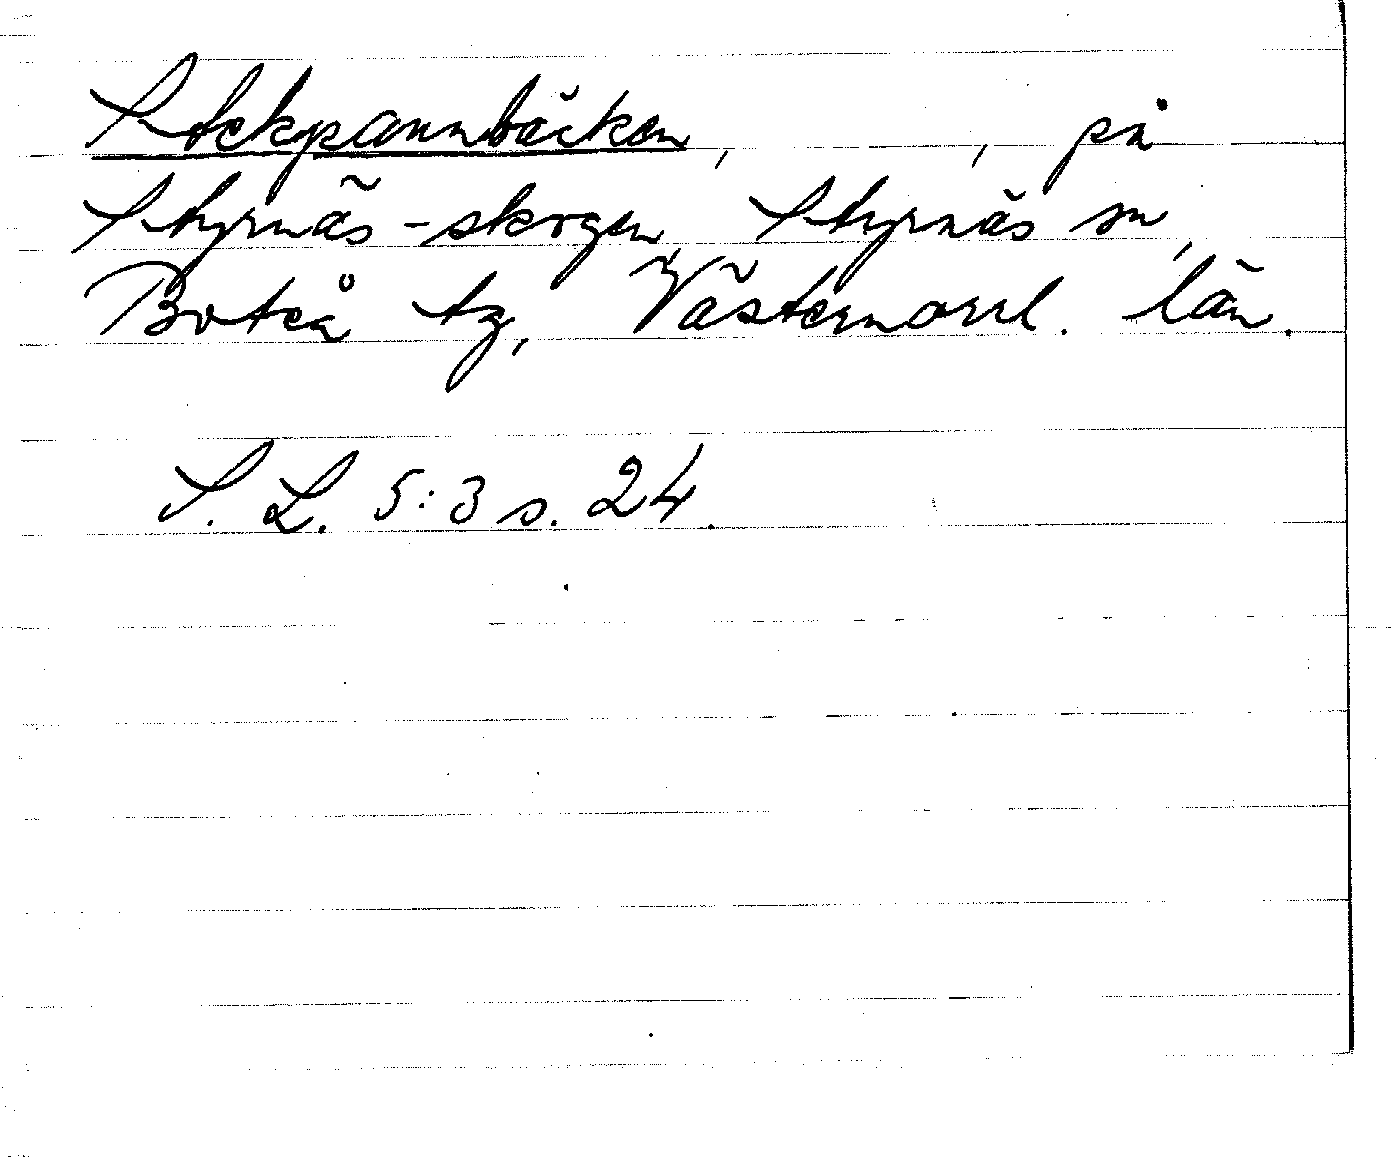 Stekpannbäcken, , på
Styrnäs-skogen, Styrnäs sn,
Boteå tg, Västernorrl. län.
S. L. 5:3 s. 24.